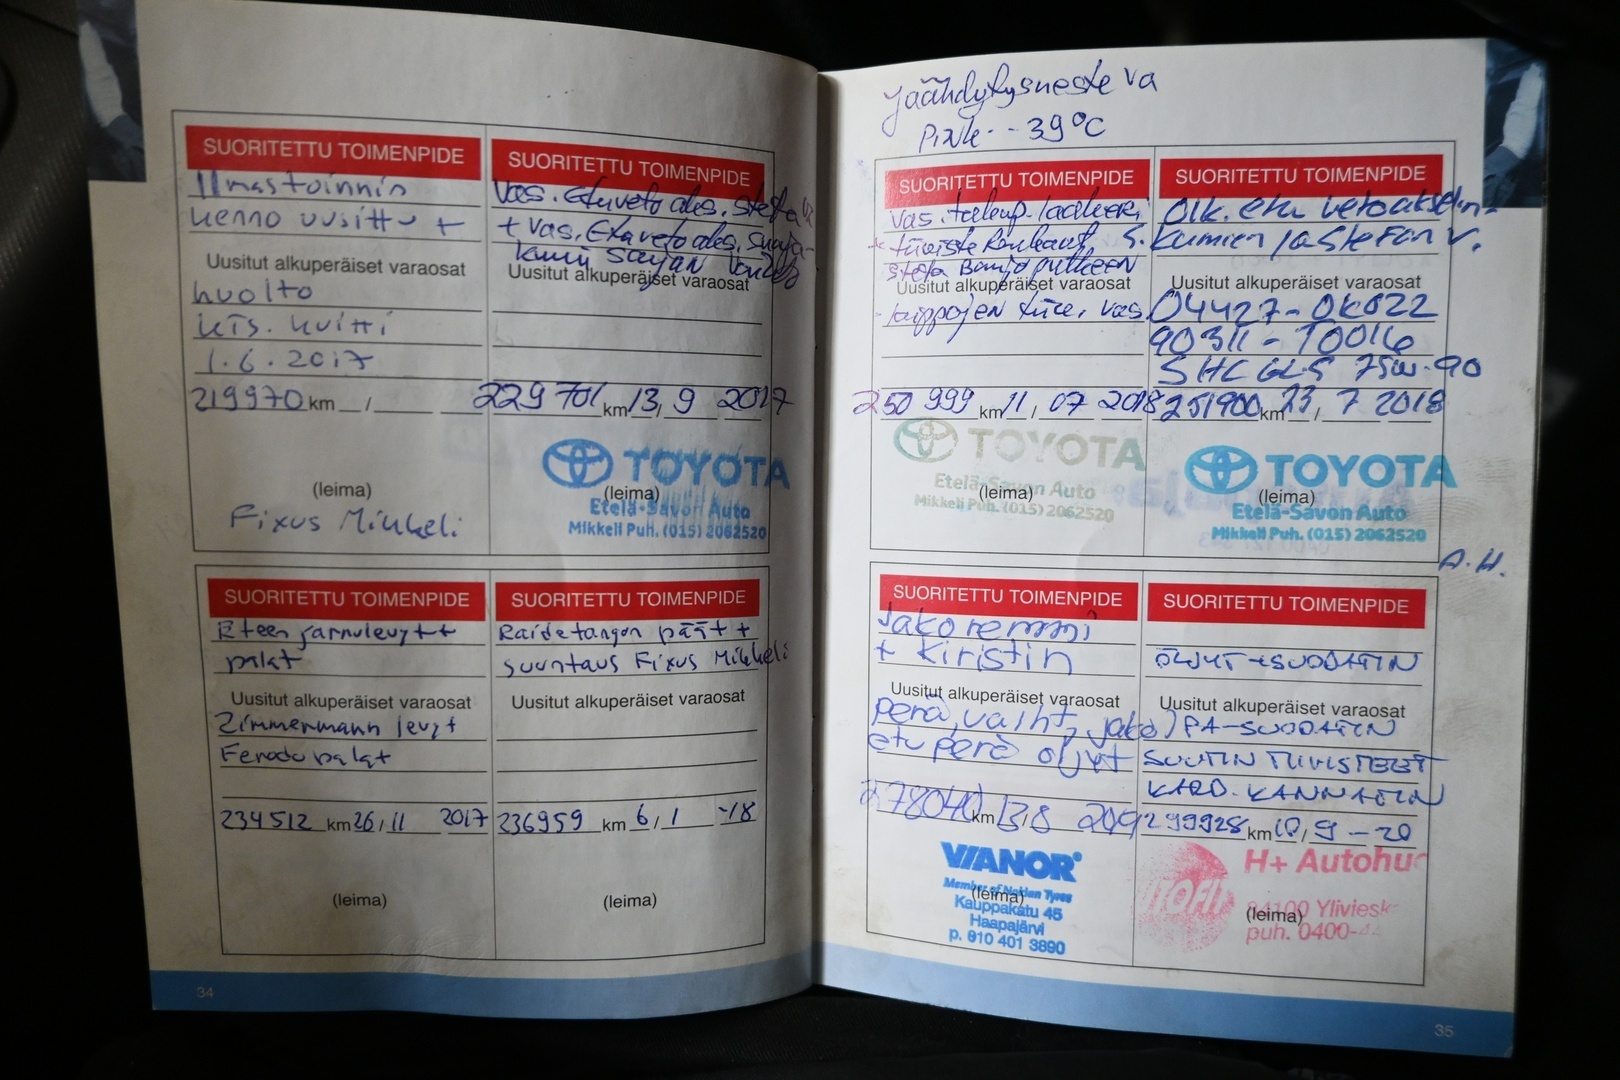 SUORITETTU TOIMENPIDE
Ilmastoinnin
kenno uusittu +
Uusitut alkuperäiset varaosat
huolto
kts. kuitti
1.6.2017
219970 km /
(leima)
Fixus Mikkeli
SUORITETTU TOIMENPIDE
Vas. Etuveto aks. stefa
+ vas. Etuveto aks. suoja-
kumi sarjan
Uusitut alkuperäiset varaosat
229701 km 13/9 2017
TOYOTA
(leima)
Etelä-Savon Auto
Mikkeli Puh. (015) 2062520
SUORITETTU TOIMENPIDE
Eteen jarrulevyt +
palat
Uusitut alkuperäiset varaosat
Zimmermann levyt
Ferodo palat
234512 km 26/11 2017
(leima)
SUORITETTU TOIMENPIDE
Raidetangon päät +
suuntaus Fixus Mikkeli
Uusitut alkuperäiset varaosat
236959 km 6/1 -18
(leima)
34
Jäähdytysneste va
Pink -39°C
SUORITETTU TOIMENPIDE
Vas. tukup. laakeri
stefa Banjo putkeen
Uusitut alkuperäiset varaosat
laippojen tiiv. vas.
250 999 km 11/07 2018
TOYOTA
Etelä-Savon Auto
(leima)
Mikkeli Puh. (015) 2062520
SUORITETTU TOIMENPIDE
Oik. etu vetoakselin-
S. kumien ja stefan v.
Uusitut alkuperäiset varaosat
04427-0K022
90311-T0016
SHC GLS 75W-90
251900 km 23/7 2018
TOYOTA
(leima)
Etelä-Savon Auto
Mikkeli Puh. (015) 2062520
A.H.
SUORITETTU TOIMENPIDE
Jakoremmi
+ Kiristin
Uusitut alkuperäiset varaosat
Perä, vaiht, jako)
etu perä öljyt
278040 km 13/8 2019
VIANOR
Member of Nokian Tyres
(leima)
Kauppakatu 45
Haapajärvi
p. 010 401 3890
SUORITETTU TOIMENPIDE
ÖLJYT+SUODATIN
Uusitut alkuperäiset varaosat
PA-SUODATIN
SUUTIN TIIVISTEET
KARD. KANNATIN
299928 km 10/9 -20
H+ Autohu
TOFIT
84100 Yliviesk
(leima)
puh. 0400-44
35